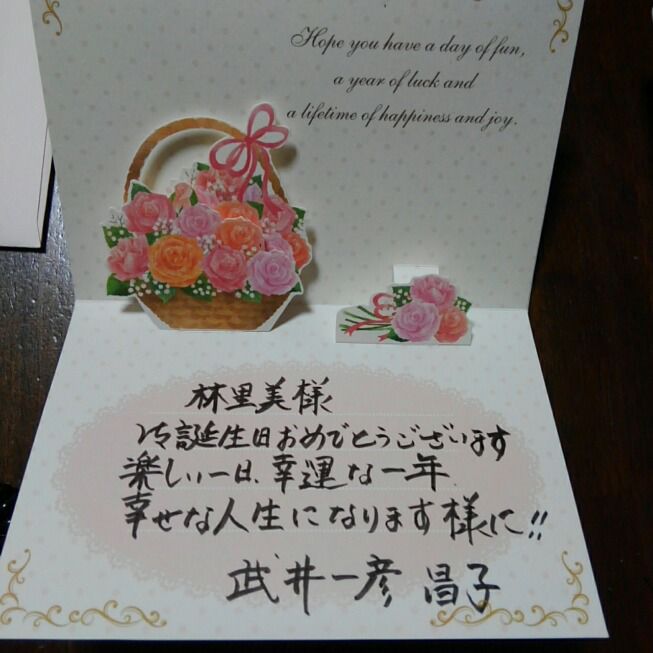 Hope you have a day of fun,
a year of luck and
a lifetime of happiness and joy.
林里美様
お誕生日おめでとうございます
楽しい一日、幸運な一年
幸せな人生になります様に!!
武井一彦 昌子